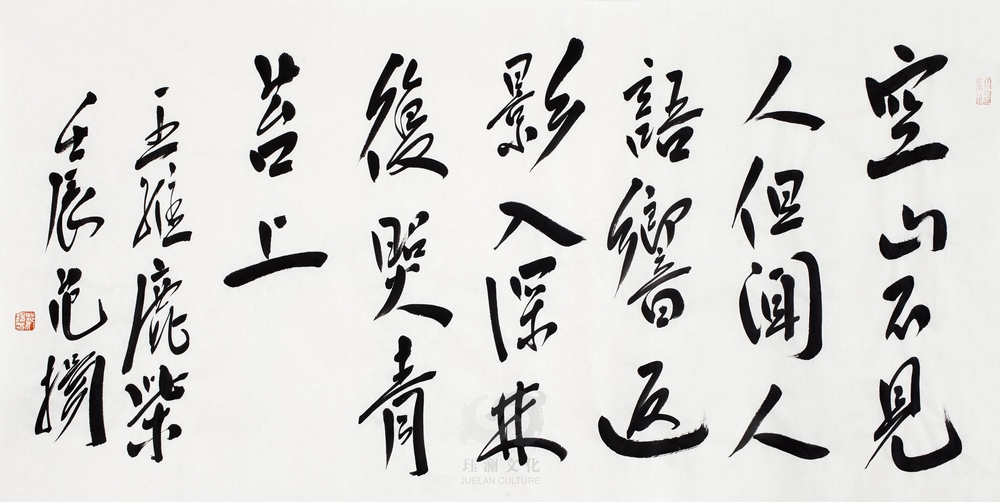 空山不見
人但聞人
語響返
影入深林
復照青
苔上
王維鹿柴
壬辰范
珏澜文化
JUELAN CULTURE